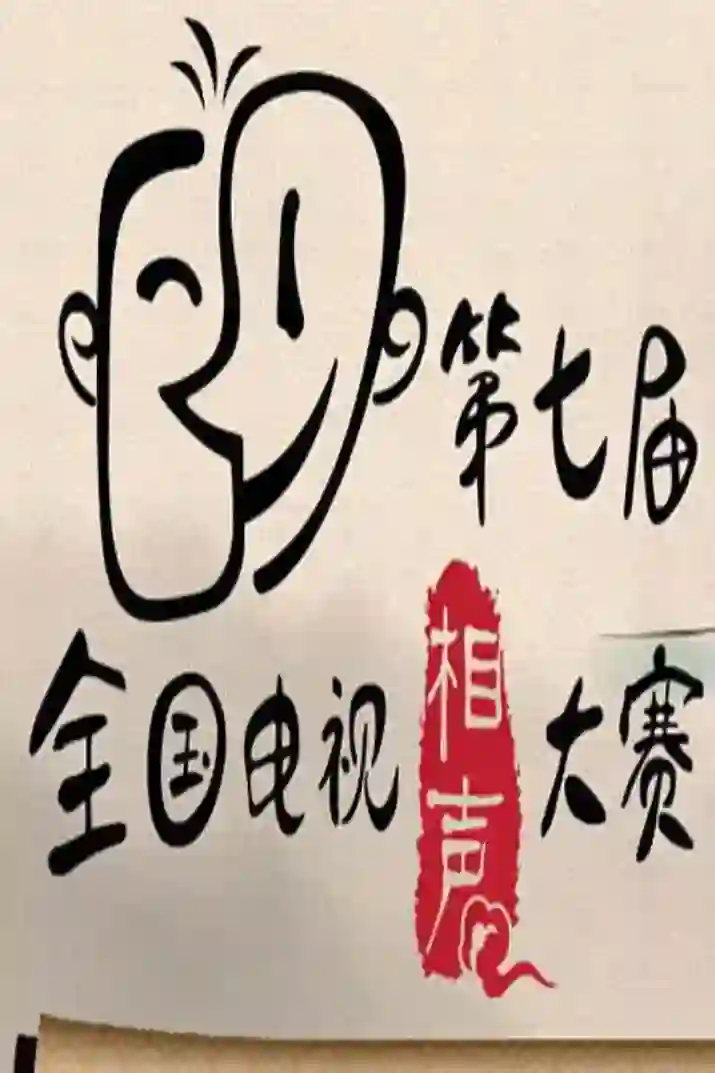 第七届
全国电视相声大赛